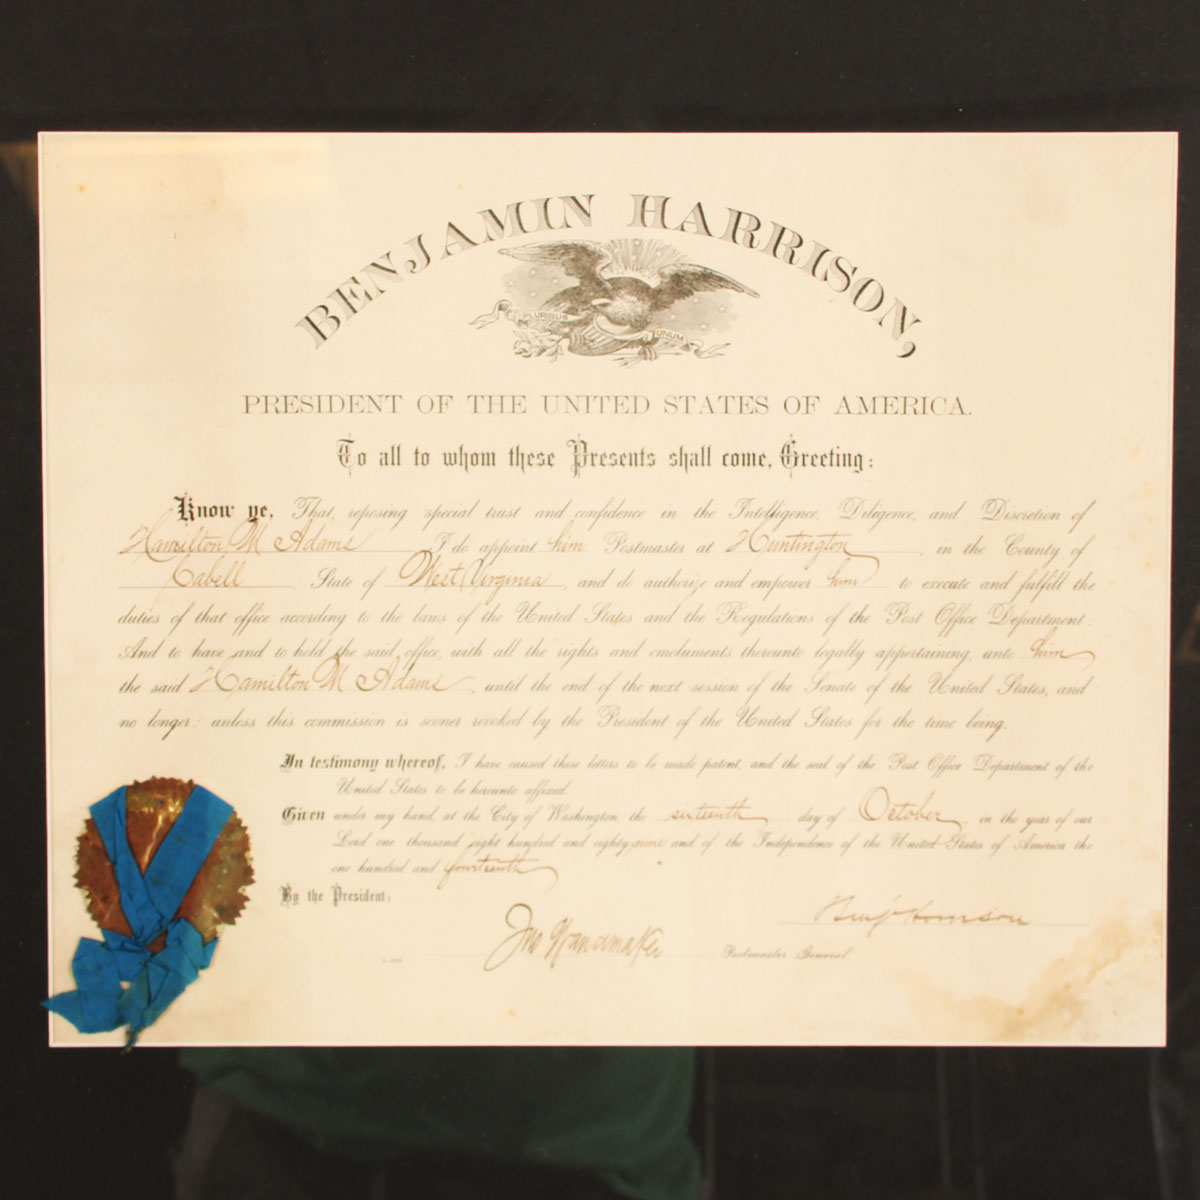 BENJAMIN HARRISON,
PLURIBUS
UNUM
PRESIDENT OF THE UNITED STATES OF AMERICA.
To all to whom these Presents shall come, Greeting:
Know ye, That, reposing special trust and confidence in the Intelligence, Diligence, and Discretion of
Hamilton M Adams I do appoint him Postmaster at Huntington, in the County of
Cabell State of West Virginia, and do authorize and empower him to execute and fulfill the
duties of that office according to the laws of the United States and the Regulations of the Post Office Department:
And to have and to hold the said office, with all the rights and emoluments thereunto legally appertaining, unto him
the said Hamilton M Adams, until the end of the next session of the Senate of the United States, and
no longer: unless this commission is sooner revoked by the President of the United States for the time being.
In testimony whereof, I have caused these letters to be made patent, and the seal of the Post Office Department of the
United States to be hereunto affixed.
Given under my hand, at the City of Washington, the sixteenth day of October, in the year of our
Lord one thousand eight hundred and eighty-nine and of the Independence of the United States of America the
one hundred and fourteenth
By the President:
Benj Harrison
Jno Wanamaker Postmaster General.